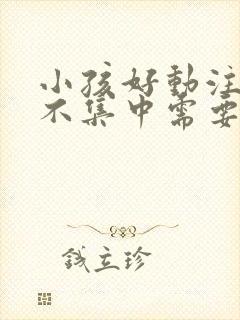 小孩好動注
不集中需要
钱立珍